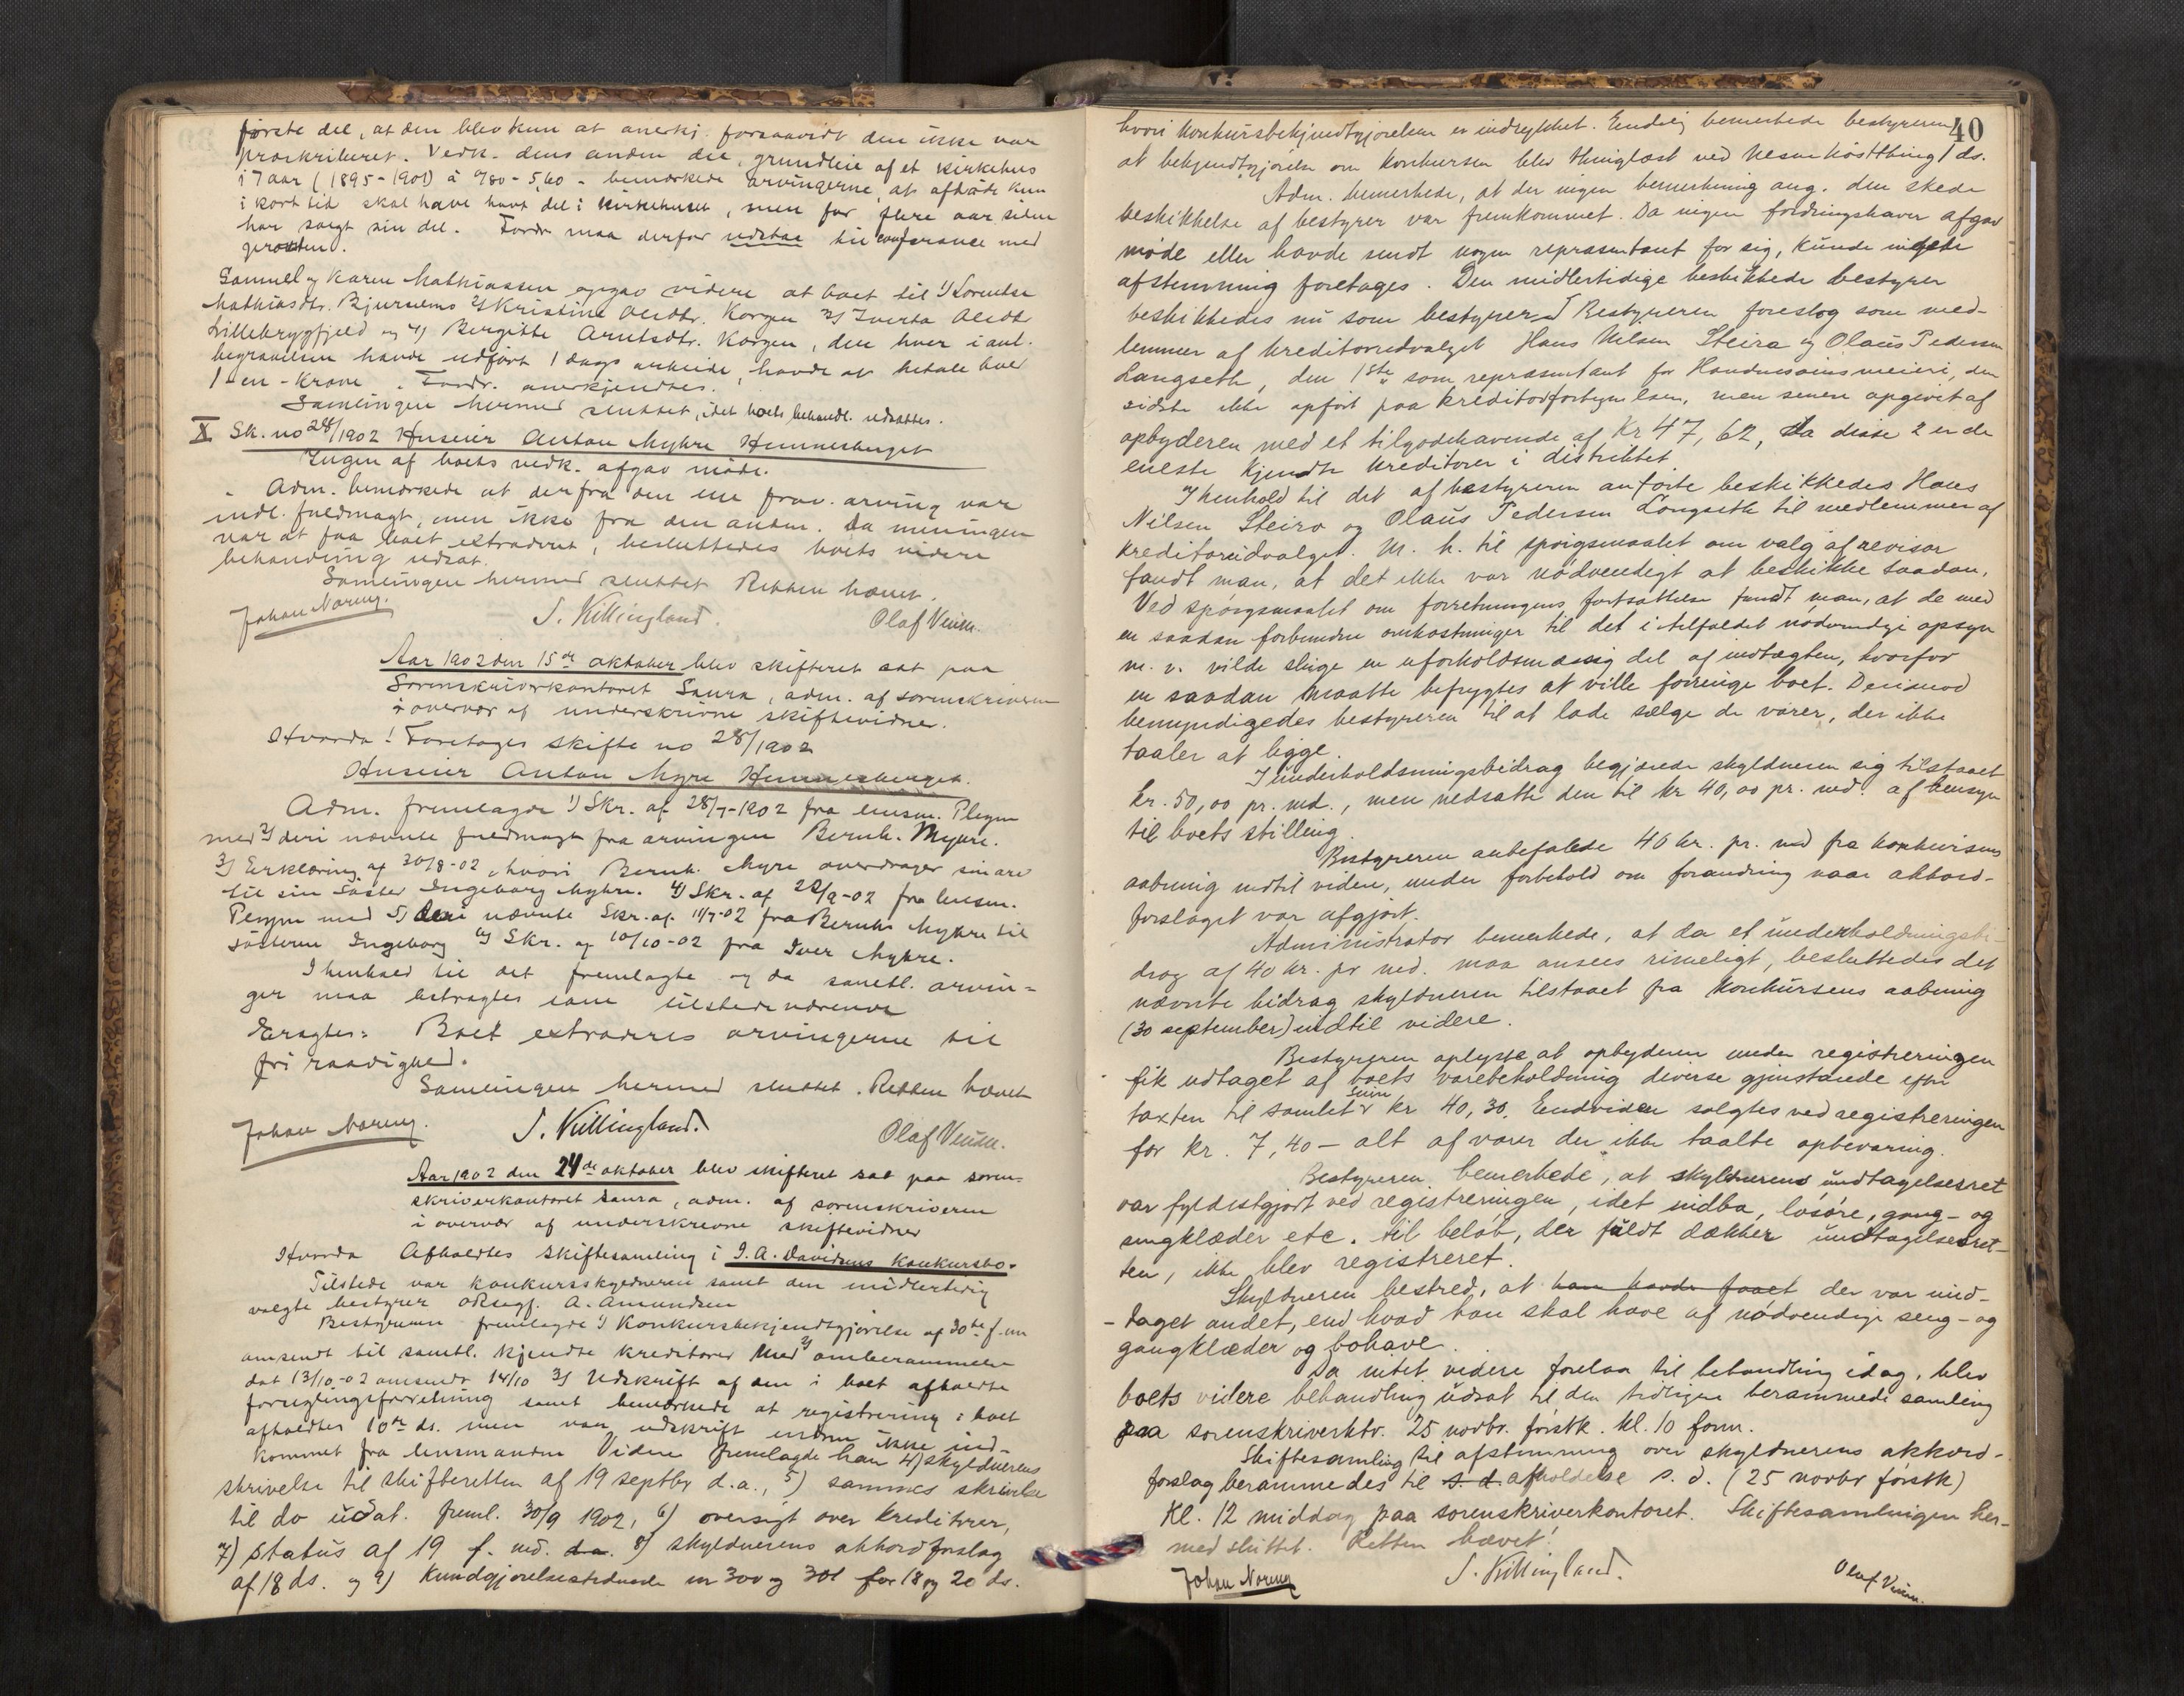 første del, at den blev kun at anerkj. forsaavidt den ikke var
proskriberet. Vedk. dens anden del, grundleie af et kirkehus
i 7 aar (1895-1901) à /80 - 5,60 - bemærkede arvingerne, at afdøde kun
i kort tid skal have havt del i kirkehuset, men for flere aar siden
har solgt sin del. Fordr. maa derfor udstaa til conferance med
Samuel og Karen Mathiassen opgav videre at boet til 1) Lorentse
Mathiasdtr. Bjurnemo 2) Kristine Olidtr. Korgen 3) Iverta Olidtr.
Lillebrygfjeld og 4) Bergitte Arntsdtr. Korgen, der hver i anl.
begravelsen havde udført 1 dags arbeide, havde at betale hver
1 - en - Krone. Fordr. anerkjendtes.
Samlingen hermed sluttet, idet boets behandl. udsattes.
X Sk. no 28/1902 Huseier Anton Myhre Hemnesberget
Ingen af boets vedk. afgav møde.
Adm. bemærkede at der fra den ene frav. arving var
indl. fuldmagt, men ikke fra den anden. Da meningen
var at faa boet extraderet, besluttedes boets videre
behandling udsat.
Samlingen hermed sluttet Retten hævet.
Johan Noreng. S. Killingland. Olaf Veum.
Aar 1902 den 15de oktober blev skifteret sat paa
Sorenskriverkontoret Saura, adm. af sorenskriveren
i overvær af underskrivne skiftevidner.
Hvorda! Foretoges skifte no 28/1902
Huseier Anton Myre Hemnesberget.
Adm. fremlagde 1) Skr. af 28/7-1902 fra lensm. Plegm
med 2) deri nævnte fuldmagt fra arvingen Bernh. Myhre.
3) Erklæring af 30/8-02, hvori Bernh. Myre overdrager sin arv
til sin søster Ingeborg Myhre. 4) Skr. af 22/9-02 fra lensm.
Plegm med 5) deri nævnte Skr. af 11/7-02 fra Bernh. Myhre til
søsteren Ingeborg 6) Skr. af 10/10-02 fra Iver Myhre.
I henhold til det fremlagte og da samtl. arvin=
ger maa betragtes som tilstedeværende
Eragtes: Boet extraderes arvingerne til
fri raadighed.
Samlingen hermed sluttet. Retten hævet
Johan Noreng. S. Killingland. Olaf Veum.
Aar 1902 den 24de oktober blev skifteret sat paa soren=
skriverkontoret Saura, adm. af sorenskriveren
i overvær af underskrevne skiftevidner
Hvorda Afholdtes skiftesamling i I. A. Davidsens konkursbo.
Tilstede var konkursskyldneren samt den midlertidig
valgte bestyrer oRsagf. A. Amundsen
Bestyreren fremlagde 1) Konkursbekjendtgjørelse af 30te f. m
omsendt til samtl. kjendte kreditorer med 2) omberammelse
dat 13/10-02 omsendt 14/10 3) Udskrift af den i boet afholdte
forseglingsforretning samt bemærkede at registrering i boet
afholdtes 10de ds. men var udskrift endnu ikke ind-
kommet fra lensmanden Videre fremlagde han 4) skyldnerens
skrivelse til skifteretten af 19 septbr d.a., 5) sammes skrivelse
til do udat. freml. 30/9 1902, 6) oversigt over kreditorer,
7) status af 19 f. md. d.a. 8) skyldnerens akkordforslag
af 18 ds. og 9) Kundgjørelsestidende nr 300 og 301 for 18 og 20 ds.
40
hvori konkursbekjendtgjørelsen er indrykket. Endelig bemerkede bestyreren
at bekjendtgjørelse om konkursen blev thinglæst ved Nesne høstthing 1 ds.
Adm. bemerkede, at der ingen bemerkning ang. den skede
beskikkelse af bestyrer var fremkommet. Da ingen fordringshaver afgav
møde eller havde sendt nogen repræsentant for sig, kunde ingen
afstemning foretages. Den midlertidige beskikkede bestyrer
beskikkedes nu som bestyrer. Bestyreren foreslog som med-
lemmer af kreditorudvalget Hans Nilsen Steiro og Olaus Pedersen
Langseth, den 1ste som repræsentant for Handnesøens meieri, den
sidste ikke opført paa kreditorfortegnelsen, men senere opgivet af
opbyderen med et tilgodehavende af Kr 47,62, da disse 2 er de
eneste kjendte kreditorer i distriktet
I henhold til det af bestyreren anførte beskikkedes Hans
Nilsen Steiro og Olaus Pedersen Langseth til medlemmer af
kreditorudvalget. M. h. til spørgsmaalet om valg af revisor
fandt man, at det ikke var nødvendigt at beskikke saadan.
Ved spørgsmaalet om forretningens fortsættelse fandt man, at de med
en saadan forbundne omkostninger til det i tilfældet nødvendige opsyn
m. v. vilde sluge en uforholdsmæssig del af indtægten, hvorfor
en saadan maatte befrygtes at ville forringe boet. Derimod
bemyndigedes bestyreren til at lade sælge de varer, der ikke
taaler at ligge.
I underholdningsbidrag begjærede skyldneren sig tilstaaet
kr. 50,00 pr. md., men nedsatte den til kr 40,00 pr. md. af hensyn
til boets stilling.
Bestyreren anbefalede 40 kr. pr. md fra konkursens
aabning indtil videre, under forbehold om forandring naar akkord-
forslaget var afgjort.
Administrator bemerkede, at da et underholdningsbi-
drag af 40 kr. pr md. maa ansees rimeligt, besluttedes det
nævnte bidrag skyldneren tilstaaet fra konkursens aabning
(30 september) indtil videre.
Bestyreren oplyste, at opbyderen under registreringen
fik udtaget af boets varebeholdning diverse gjenstande efter
taxten til samlet sum kr 40,30. Endvidere solgtes ved registreringen
for kr. 7,40 - alt af varer der ikke taalte opbevaring.
Bestyreren bemerkede, at skyldnerens undtagelsesret
var fyldestgjort ved registreringen, idet indbo, løsøre, gang- og
sengklæder etc. til beløb, der fuldt dækker undtagelsesret-
ten, ikke blev registreret.
Skyldneren bestred, at han havde faaet der var und-
- taget andet, end hvad han skal have af nødvendige seng- og
gangklæder og bohave.
Da intet videre forelaa til behandling idag, blev
boets videre behandling udsat til den tidligere berammede samling
paa sorenskriverktr. 25 novbr. førstk. kl. 10 form.
Skiftesamling til afstemning over skyldnerens akkord-
forslag berammedes til s. d. afholdelse s. d. (25 novbr førstk)
Kl. 12 middag paa sorenskriverkontoret. Skiftesamlingen her-
med sluttet. Retten hævet!
Johan Noreng S. Killingland. Olaf Veum.